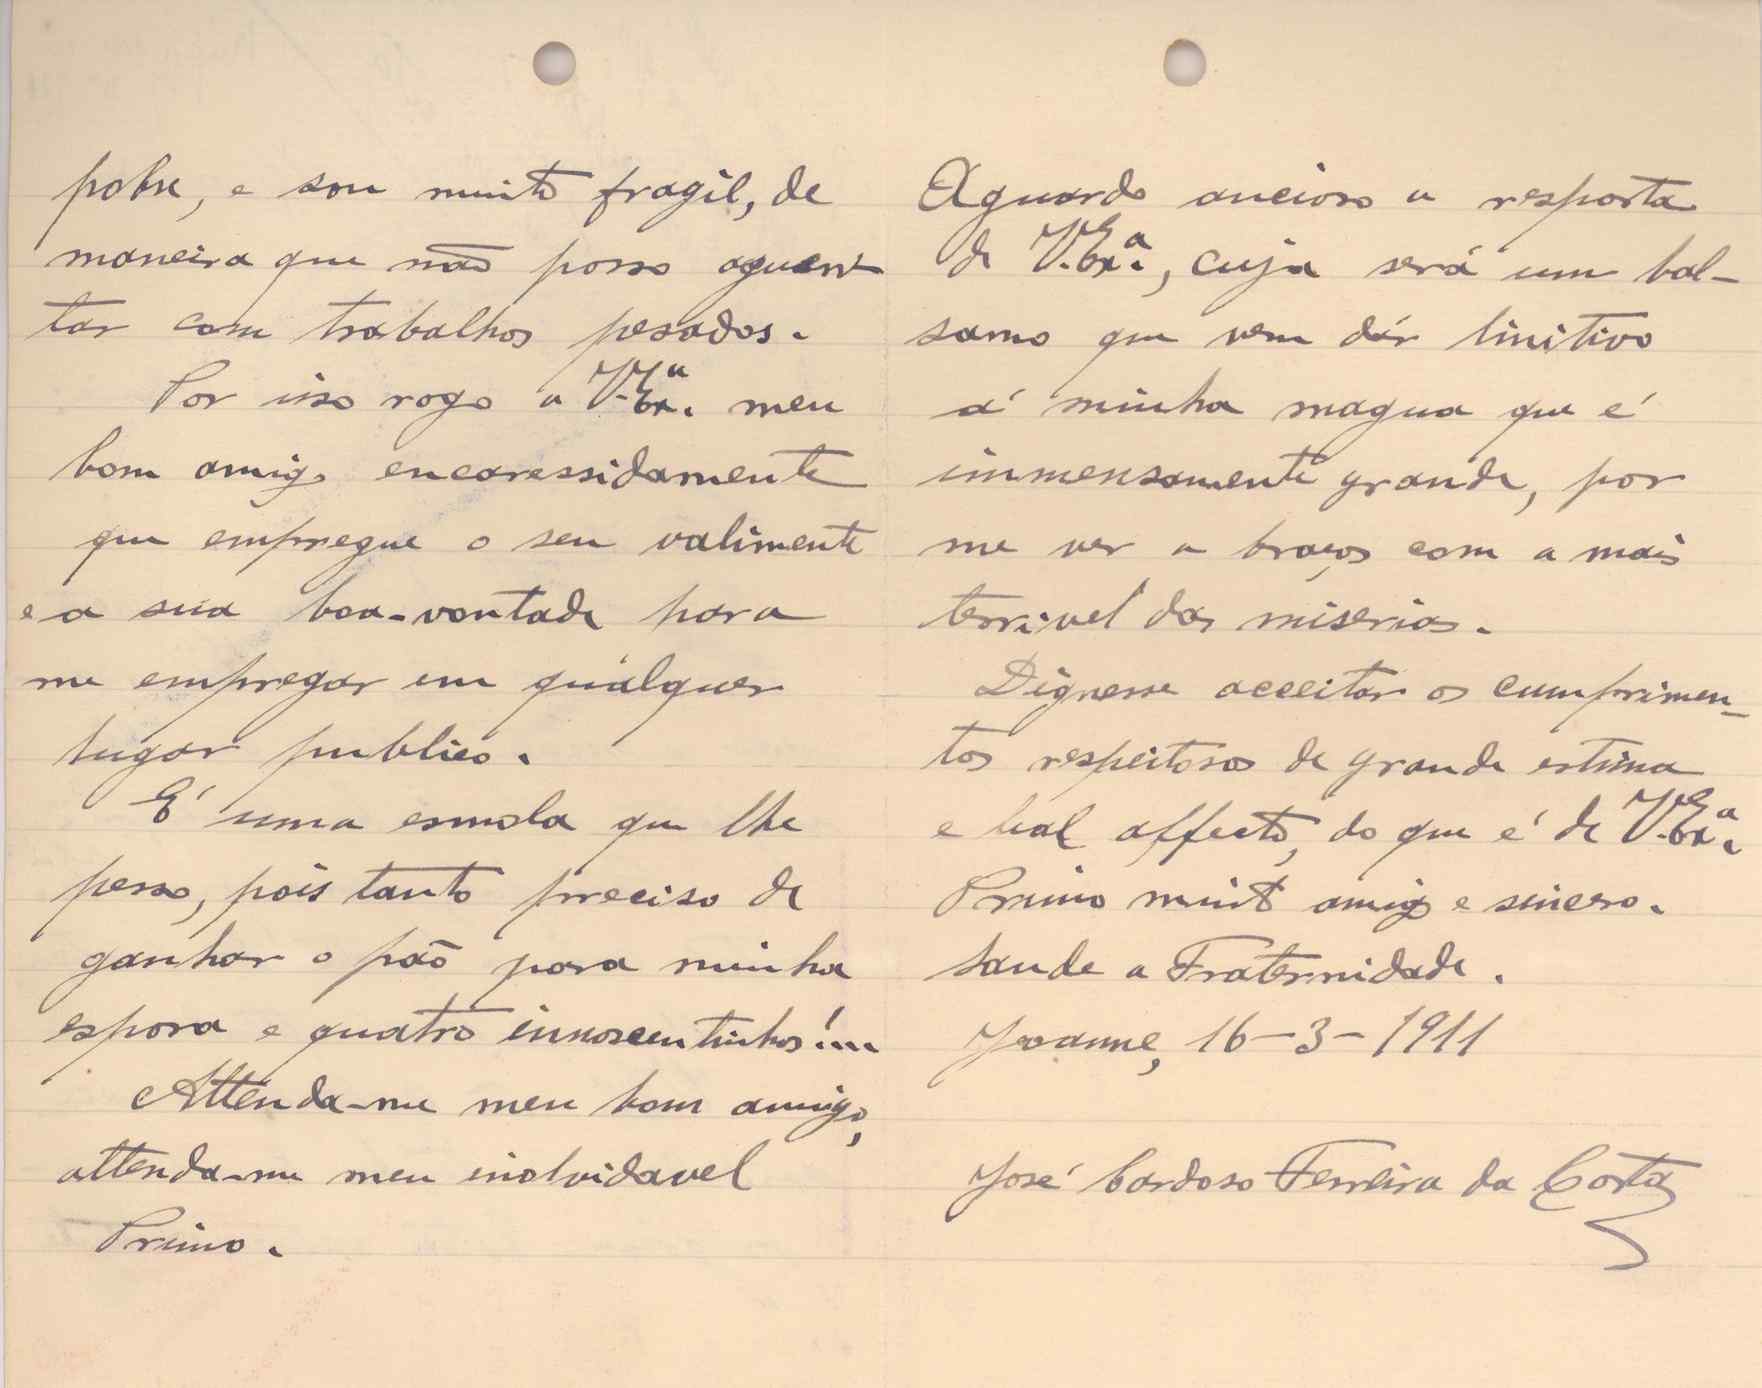 pobre, e sou muito fragil, de
maneira que não posso aguen-
tar com trabalhos pesados.
Por isso rogo a V. Ex.ª meu
bom amigo encaressidamente
que empregue o seu valimente
e a sua boa-vontade para
me empregar em qualquer
lugar publico.
E' uma esmola que lhe
pesso, pois tanto preciso de
ganhar o pão para minha
esposa e quatro innoscentinhos!...
Attenda-me meu bom amigo,
attenda-me meu inolvidavel
Primo.
Aguardo ancioso a resposta
de V. Ex.ª, cuja será um bal-
samo que vem dár linitivo
á minha magua que é
immensamente grande, por
me ver a braços com a mais
terrivel das miserias.
Dignesse acceitar os cumprimen-
tos respeitosos de grande estima
e leal affecto, do que é de V. Ex.ª
Primo muito amigo e sincero.
Saude a Fraternidade.
Joanne, 16-3-1911
José Cardoso Ferreira da Costa